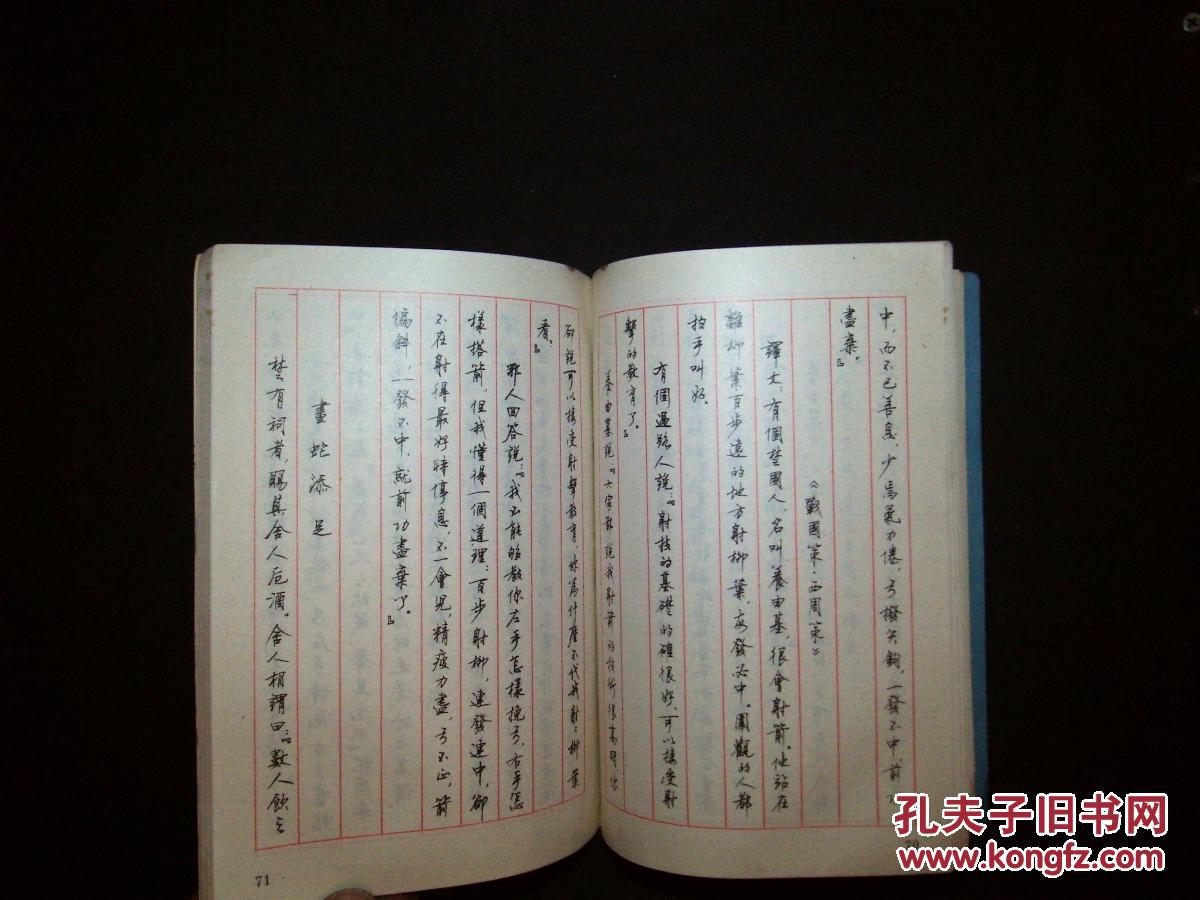 中，而不已善息，少焉氣力倦，弓撥矢鉤，一發不中，前
盡棄。』
《戰國策·西周策》
譯文：有個楚國人，名叫養由基，很會射箭。他站在
離柳葉百步遠的地方射柳葉，百發必中。圍觀的人都
拍手叫好。
有個過路人說：『射技的基礎的確很好，可以接受射
擊的教育了。』
養由基說：『大家都說我射箭的技術很高明，你
却說可以接受射擊教育，你爲什麽不代我射射柳葉
看。』
那人回答說：『我不能够教你左手怎樣挽弓，右手怎
樣搭箭，但我懂得一個道理：百步射柳，連發連中，卻
不在射得最好時停息，不一會兒，精疲力盡，弓不正，箭
偏斜，一發不中，就前功盡棄了。』
畫蛇添足
楚有祠者，賜其舍人卮酒。舍人相謂曰：『數人飲之
71
70
孔夫子旧书网
www.kongfz.com